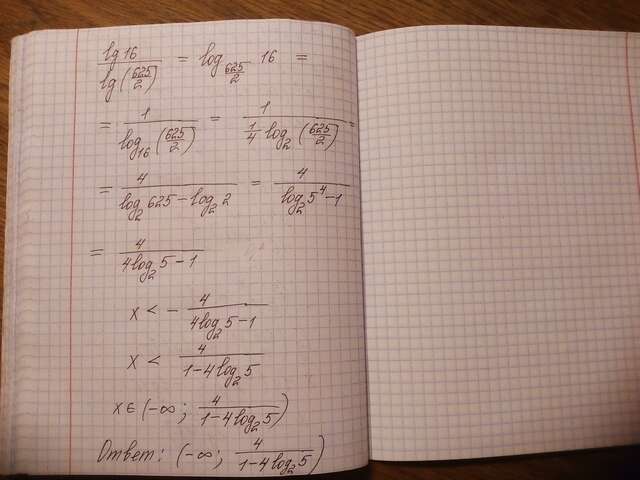 lg 16 / lg(625/2) = log_{625/2} 16 =
= 1 / log_{16}(625/2) = 1 / (1/4 log_2(625/2)) =
= 4 / (log_2 625 - log_2 2) = 4 / (log_2 5^4 - 1)
= 4 / (4 log_2 5 - 1)
x < - 4 / (4 log_2 5 - 1)
x < 4 / (1 - 4 log_2 5)
x ∈ (-∞; 4 / (1 - 4 log_2 5))
Ответ: (-∞; 4 / (1 - 4 log_2 5))